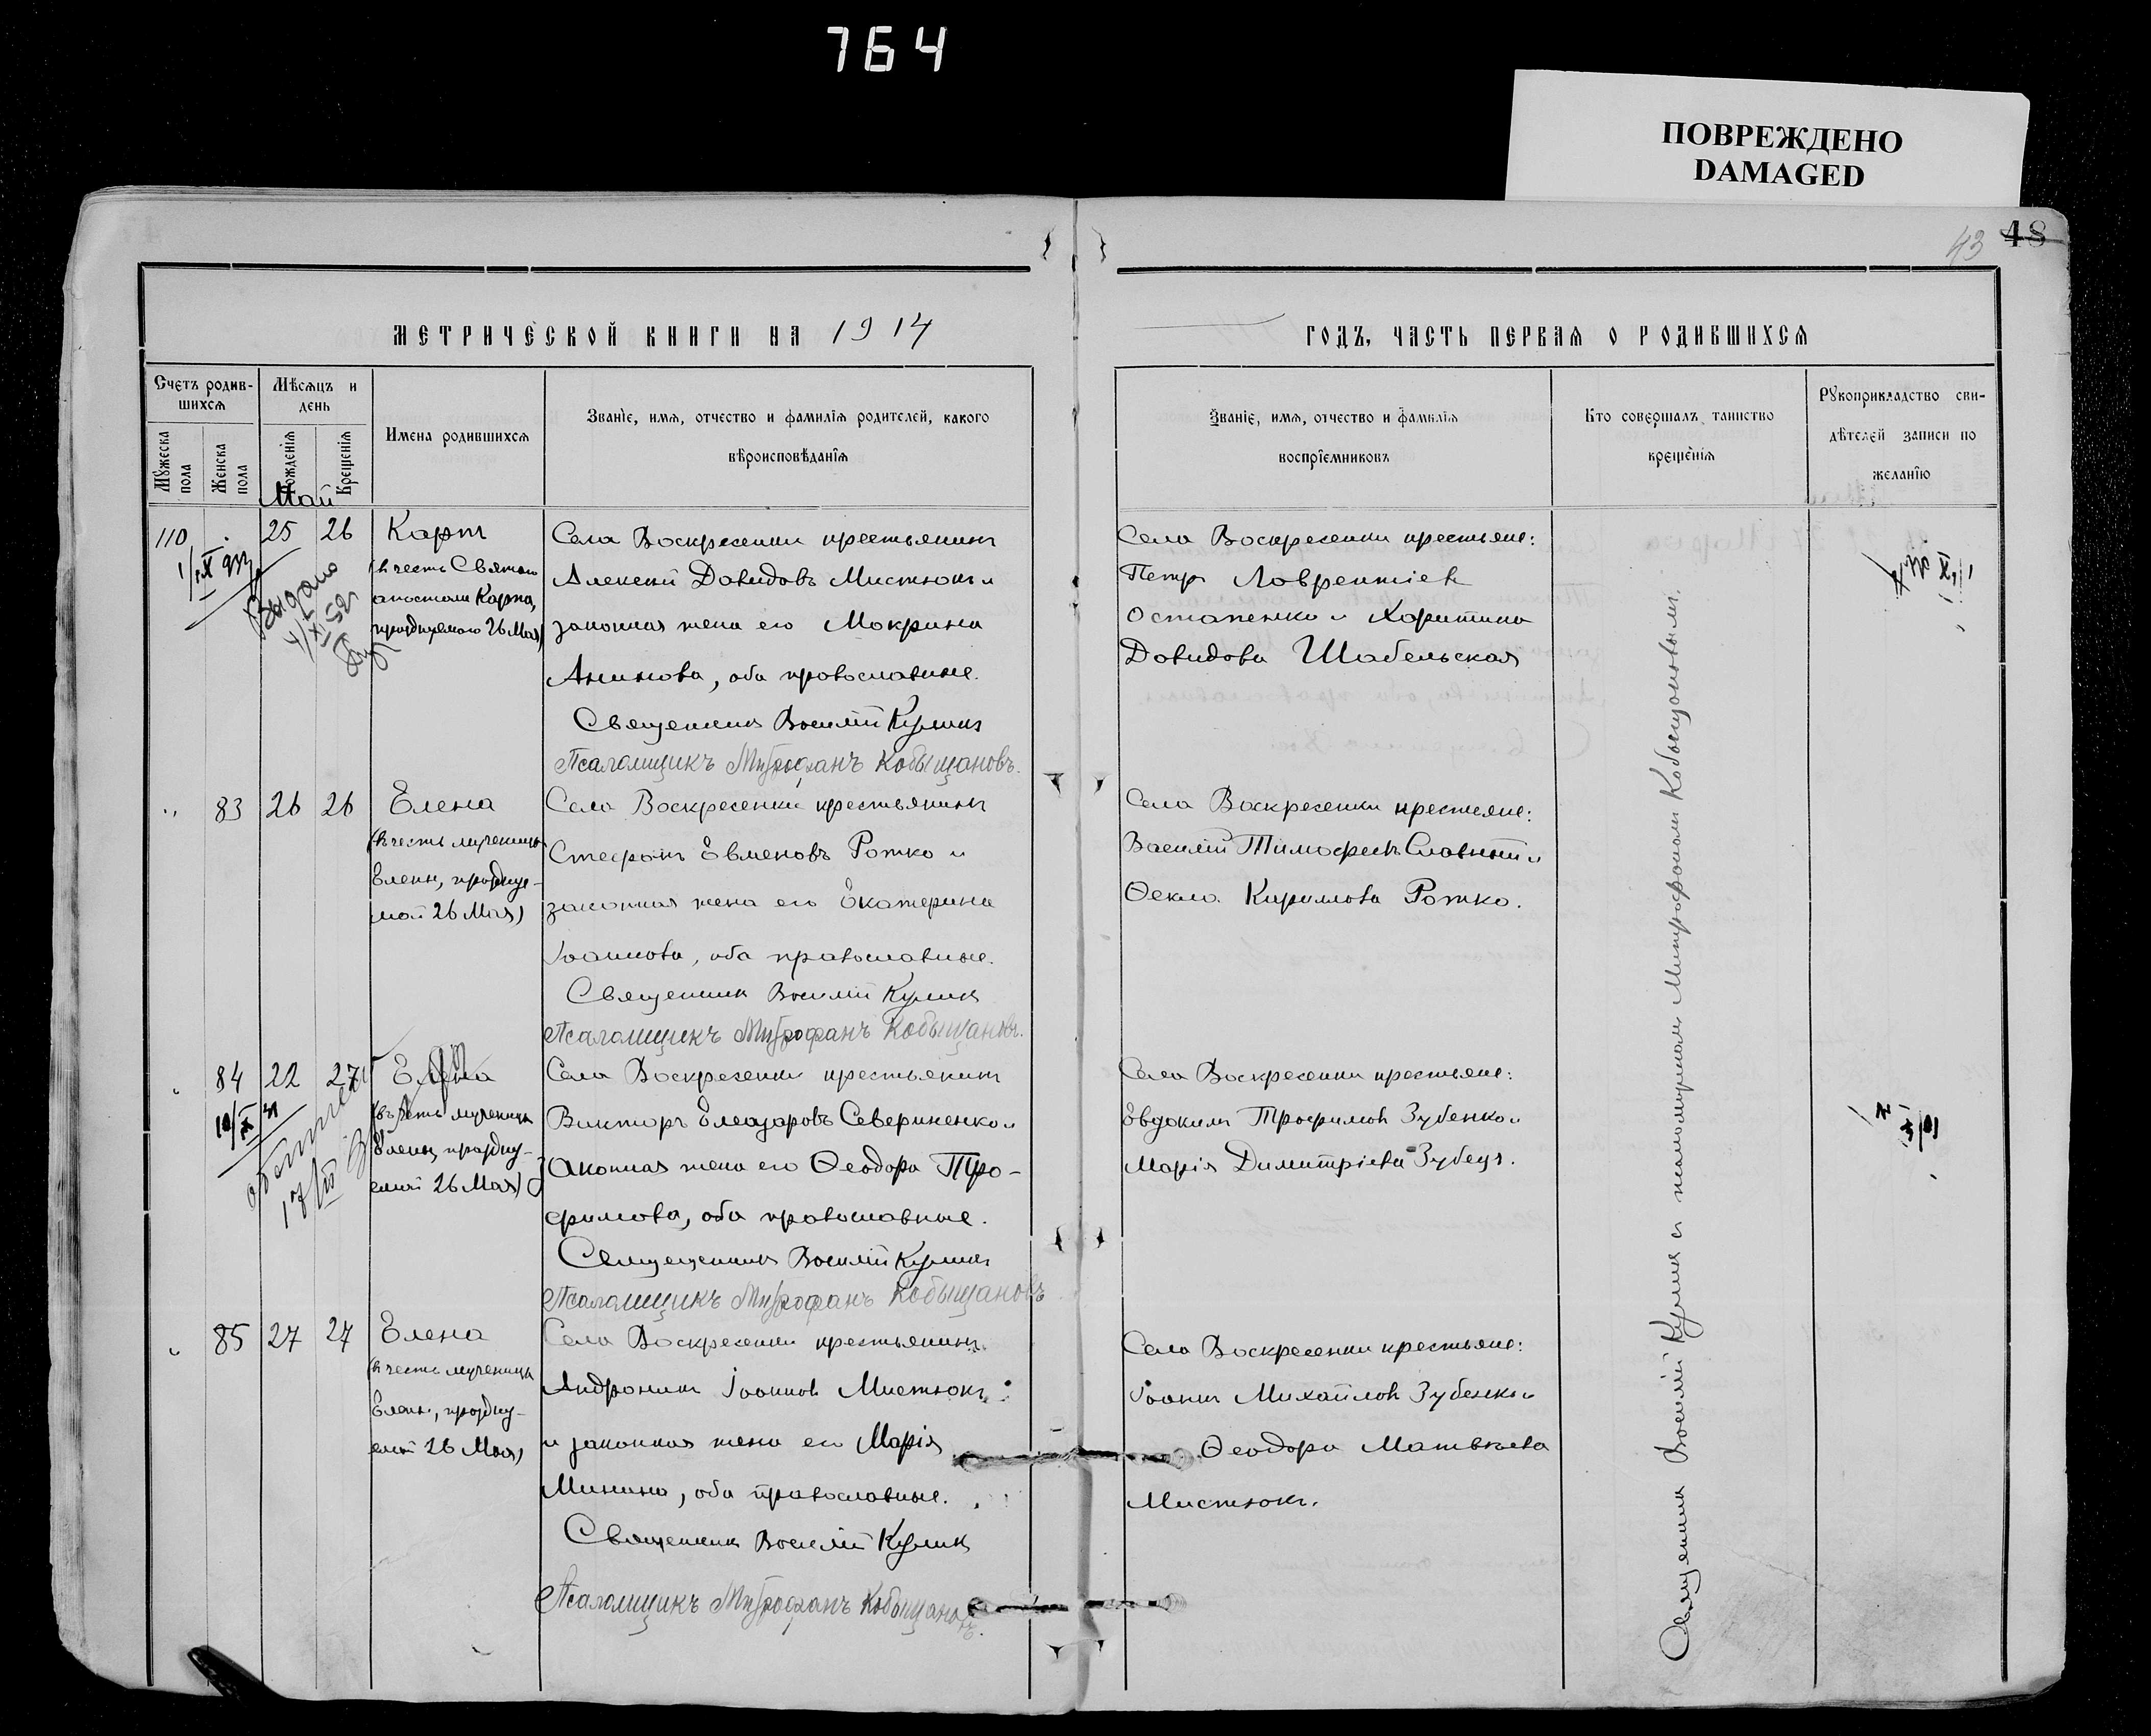 764
ПОВРЕЖДЕНО
DAMAGED
43 48
МЕТРИЧЕСКОЙ КНИГИ НА 1914
ГОДЪ, ЧАСТЬ ПЕРВАЯ О РОДИВШИХСЯ
Счетъ родив-
шихся
Мужеска пола
Женска пола
Мѣсяцъ и
день
Рожденія
Крещенія
Имена родившихся
Званіе, имя, отчество и фамилія родителей, какого
вѣроисповѣданія
Званіе, имя, отчество и фамилія
воспріемниковъ
Кто совершалъ таинство
крещенія
Рукоприкладство сви-
дѣтелей записи по
желанію
Май
110 25 26 Карпъ
(въ честь Святаго
апостола Карпа,
празднуемаго 26 Мая)
Выдано
4/XI 52
Села Воскресенки крестьянинъ
Алексѣй Давидовъ Мистюкъ и
законная жена его Мокрина
православные.
Священникъ Василій Куликъ
Псаломщикъ Митрофанъ Кобыщановъ.
Села Воскресенки крестьяне:
Петръ Лаврентіевъ
Остапенко и Харитина
Давидова Шабельская
" 83 26 26 Елена
(въ честь мученицы
Елены, праздnуе-
мой 26 Мая)
Села Воскресенки крестьянинъ
Стефанъ Евменовъ Ротко и
законная жена его Екатерина
Іоаннова, оба православные.
Священникъ Василій Куликъ
Псаломщикъ Митрофанъ Кобыщановъ.
Села Воскресенки крестьяне:
Василій Тимофеевъ Славный и
Ѳекла Кириллова Ротко.
" 84 22 27 Елена
(въ честь мученицы
Елены, празdну-
емой 26 Мая)
Села Воскресенки крестьянинъ
Викторъ Елеазаровъ Севериненко и
законная жена его Ѳеодора Тро-
фимова, оба православные.
Священникъ Василій Куликъ
Псаломщикъ Митрофанъ Кобыщановъ
Села Воскресенки крестьяне:
Евдокимъ Трофимовъ Зубенко и
Марія Димитріева Зубецъ.
" 85 27 27 Елена
(въ честь мученицы
Елены, празdну-
емой 26 Мая)
Села Воскресенки крестьянинъ
Андроникъ Іоанновъ Мистюкъ
и законная жена его Марія
Минина, оба православные.
Священникъ Василій Куликъ
Псаломщикъ Митрофанъ Кобыщановъ.
Села Воскресенки крестьяне:
Іоаннъ Михайловъ Зубенко и
Ѳеодора Матвѣева
Мистюкъ.
Священникъ Василій Куликъ съ псаломщикомъ Митрофаномъ Кобыщановымъ.